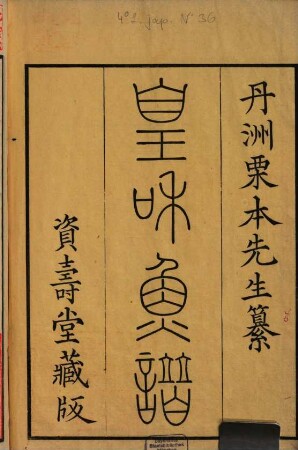 4° L. jap. N° 36
丹洲栗本先生纂
皇和魚譜
資壽堂藏版